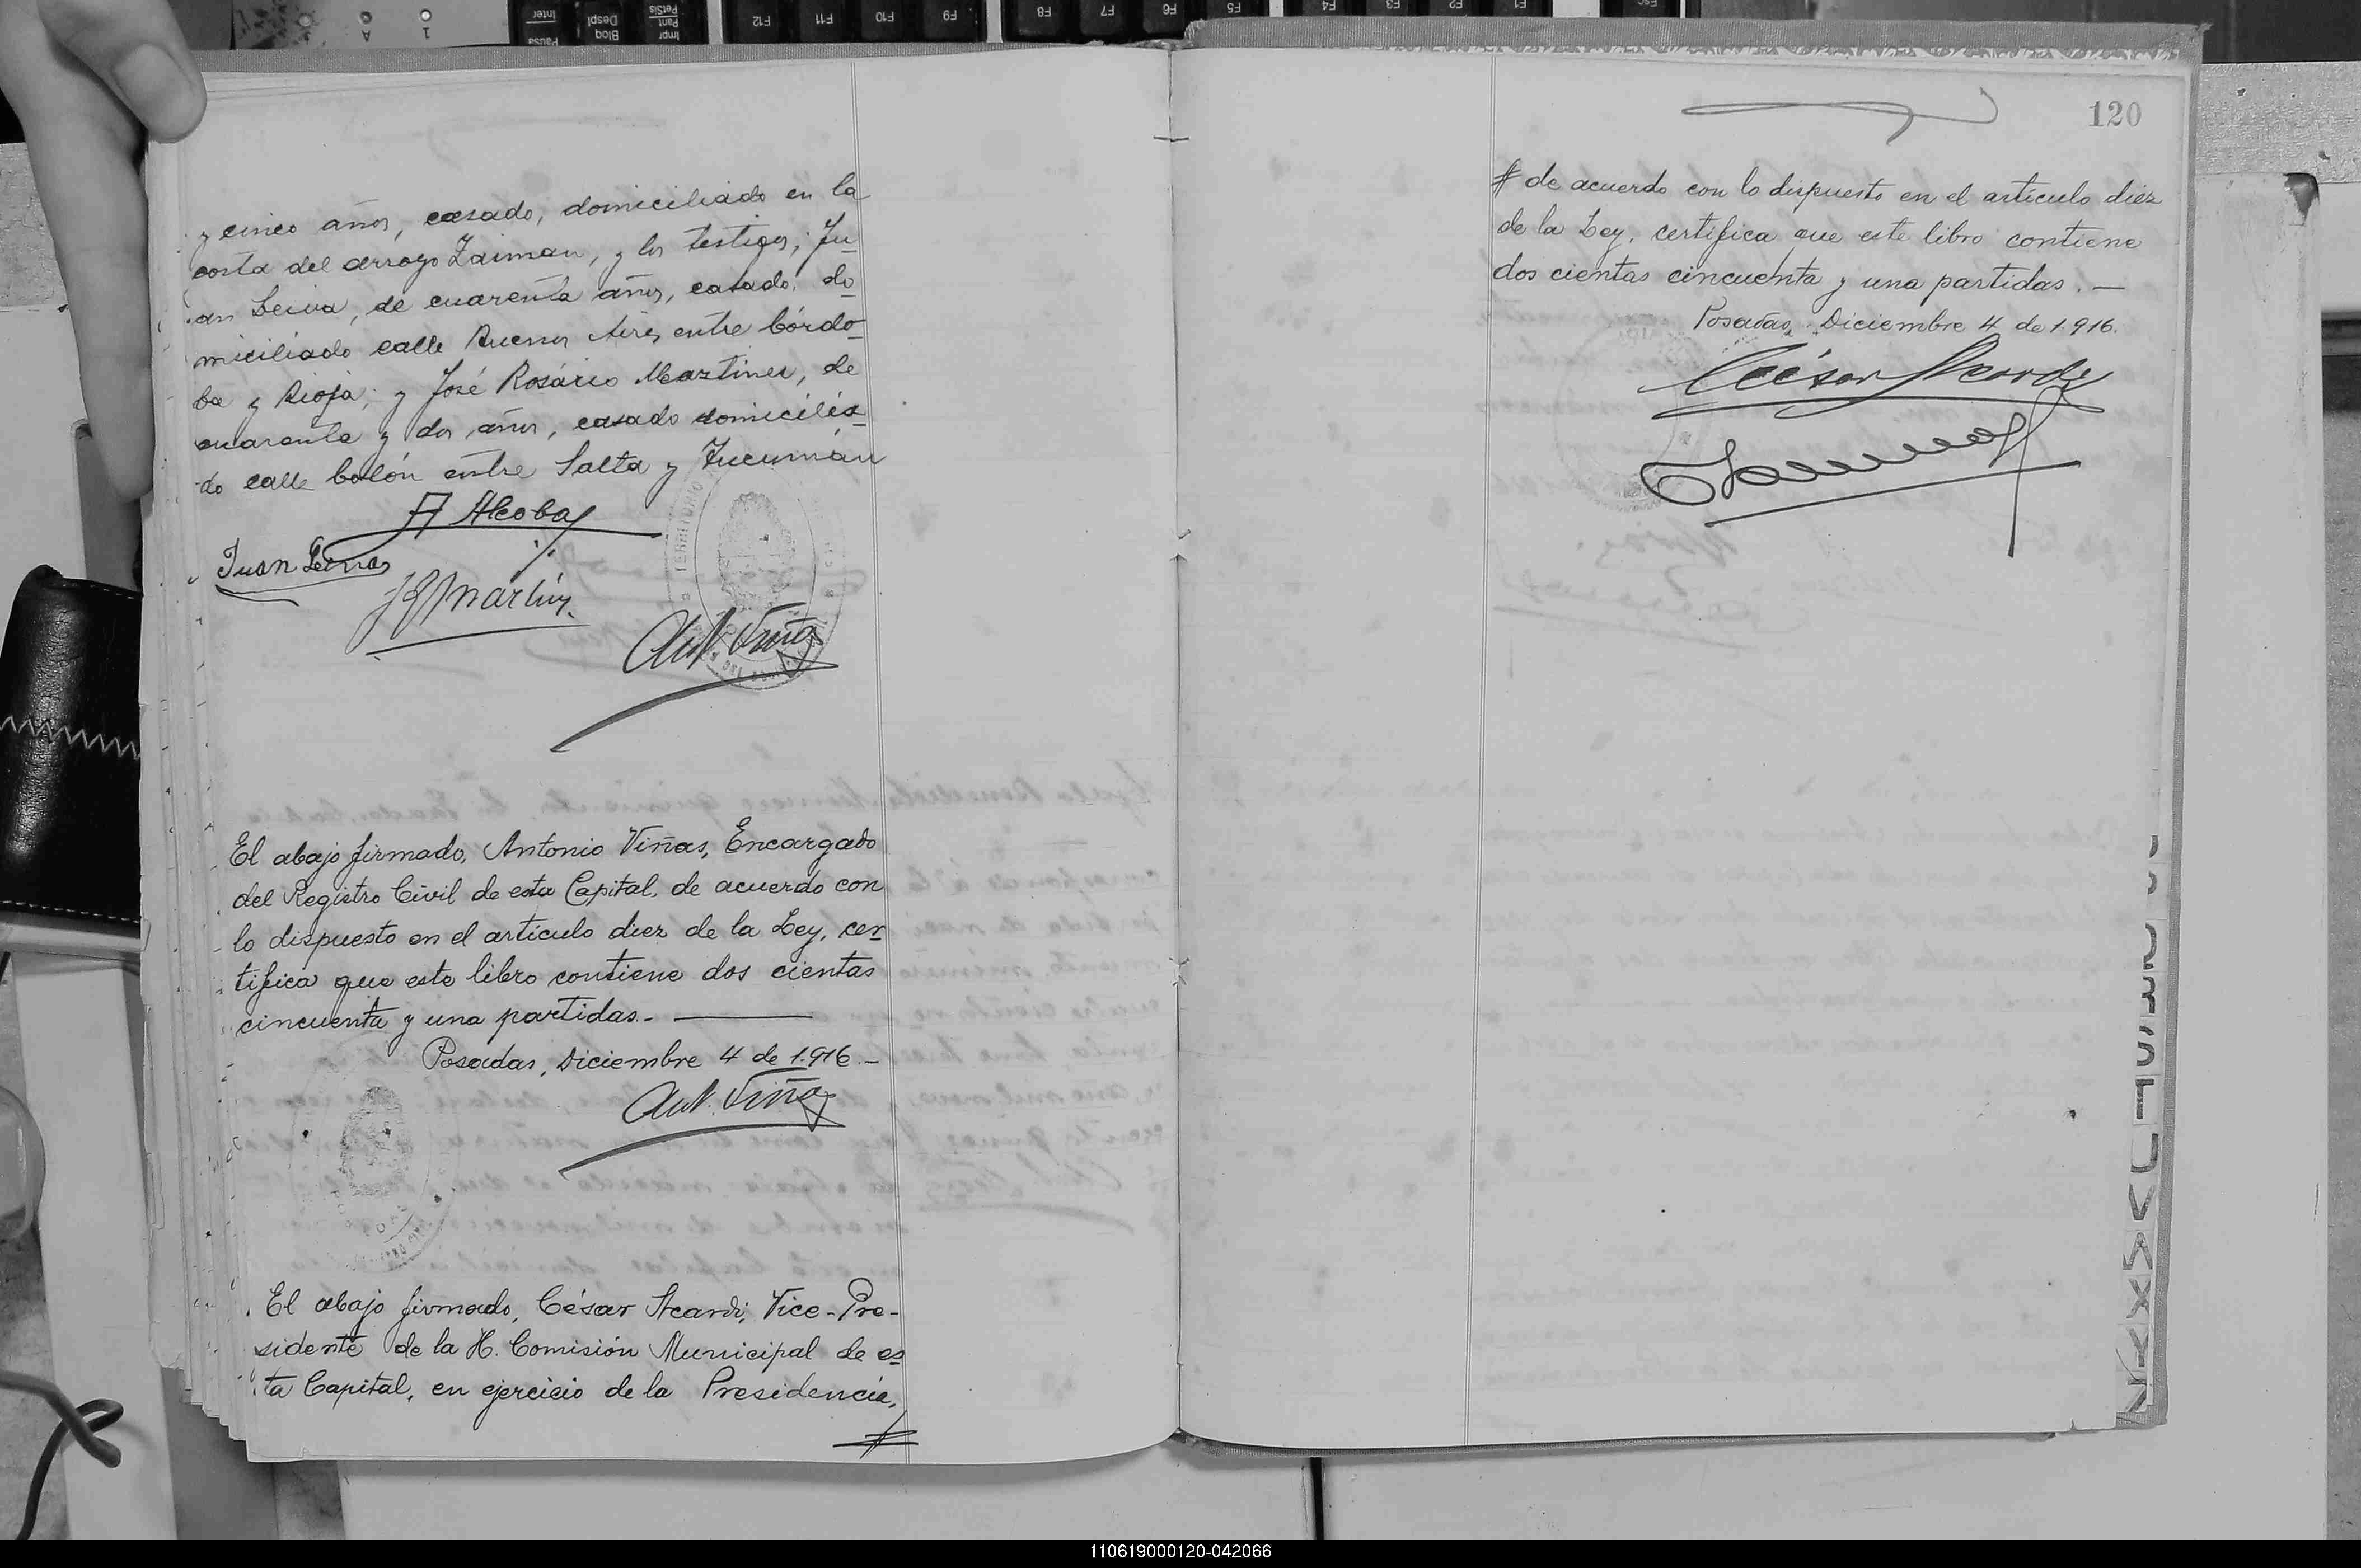 y cinco años, casado, domiciliado en la
costa del arroyo Zaiman, y los testigos; Ju
an Leiva, de cuarenta años, casado, do
miciliado calle Buenos Aires entre Córdo
ba y Rioja; y José Rosário Martinez, de
cuarenta y dos años, casado domicilia
do calle Colón entre Salta y Tucumán
A Alcoba
Juan Leiva
J R Martinez
Ant. Viñas
El abajo firmado, Antonio Viñas, Encargado
del Registro Civil de esta Capital, de acuerdo con
lo dispuesto en el artículo diez de la Ley, cer
tifica que este libro contiene dos cientas
cincuenta y una partidas.-
Posadas, Diciembre 4 de 1.916.-
Ant. Viñas
El abajo firmado, César Acardi, Vice-Pre-
sidente de la H. Comisión Municipal de es
ta Capital, en ejercicio de la Presidencia,
#
120
# de acuerdo con lo dispuesto en el artículo diez
de la Ley, certifica que este libro contiene
dos cientas cincuenta y una partidas.—
Posadas, Diciembre 4 de 1.916.
César Acardi
TERRITORIO
110619000120-042066